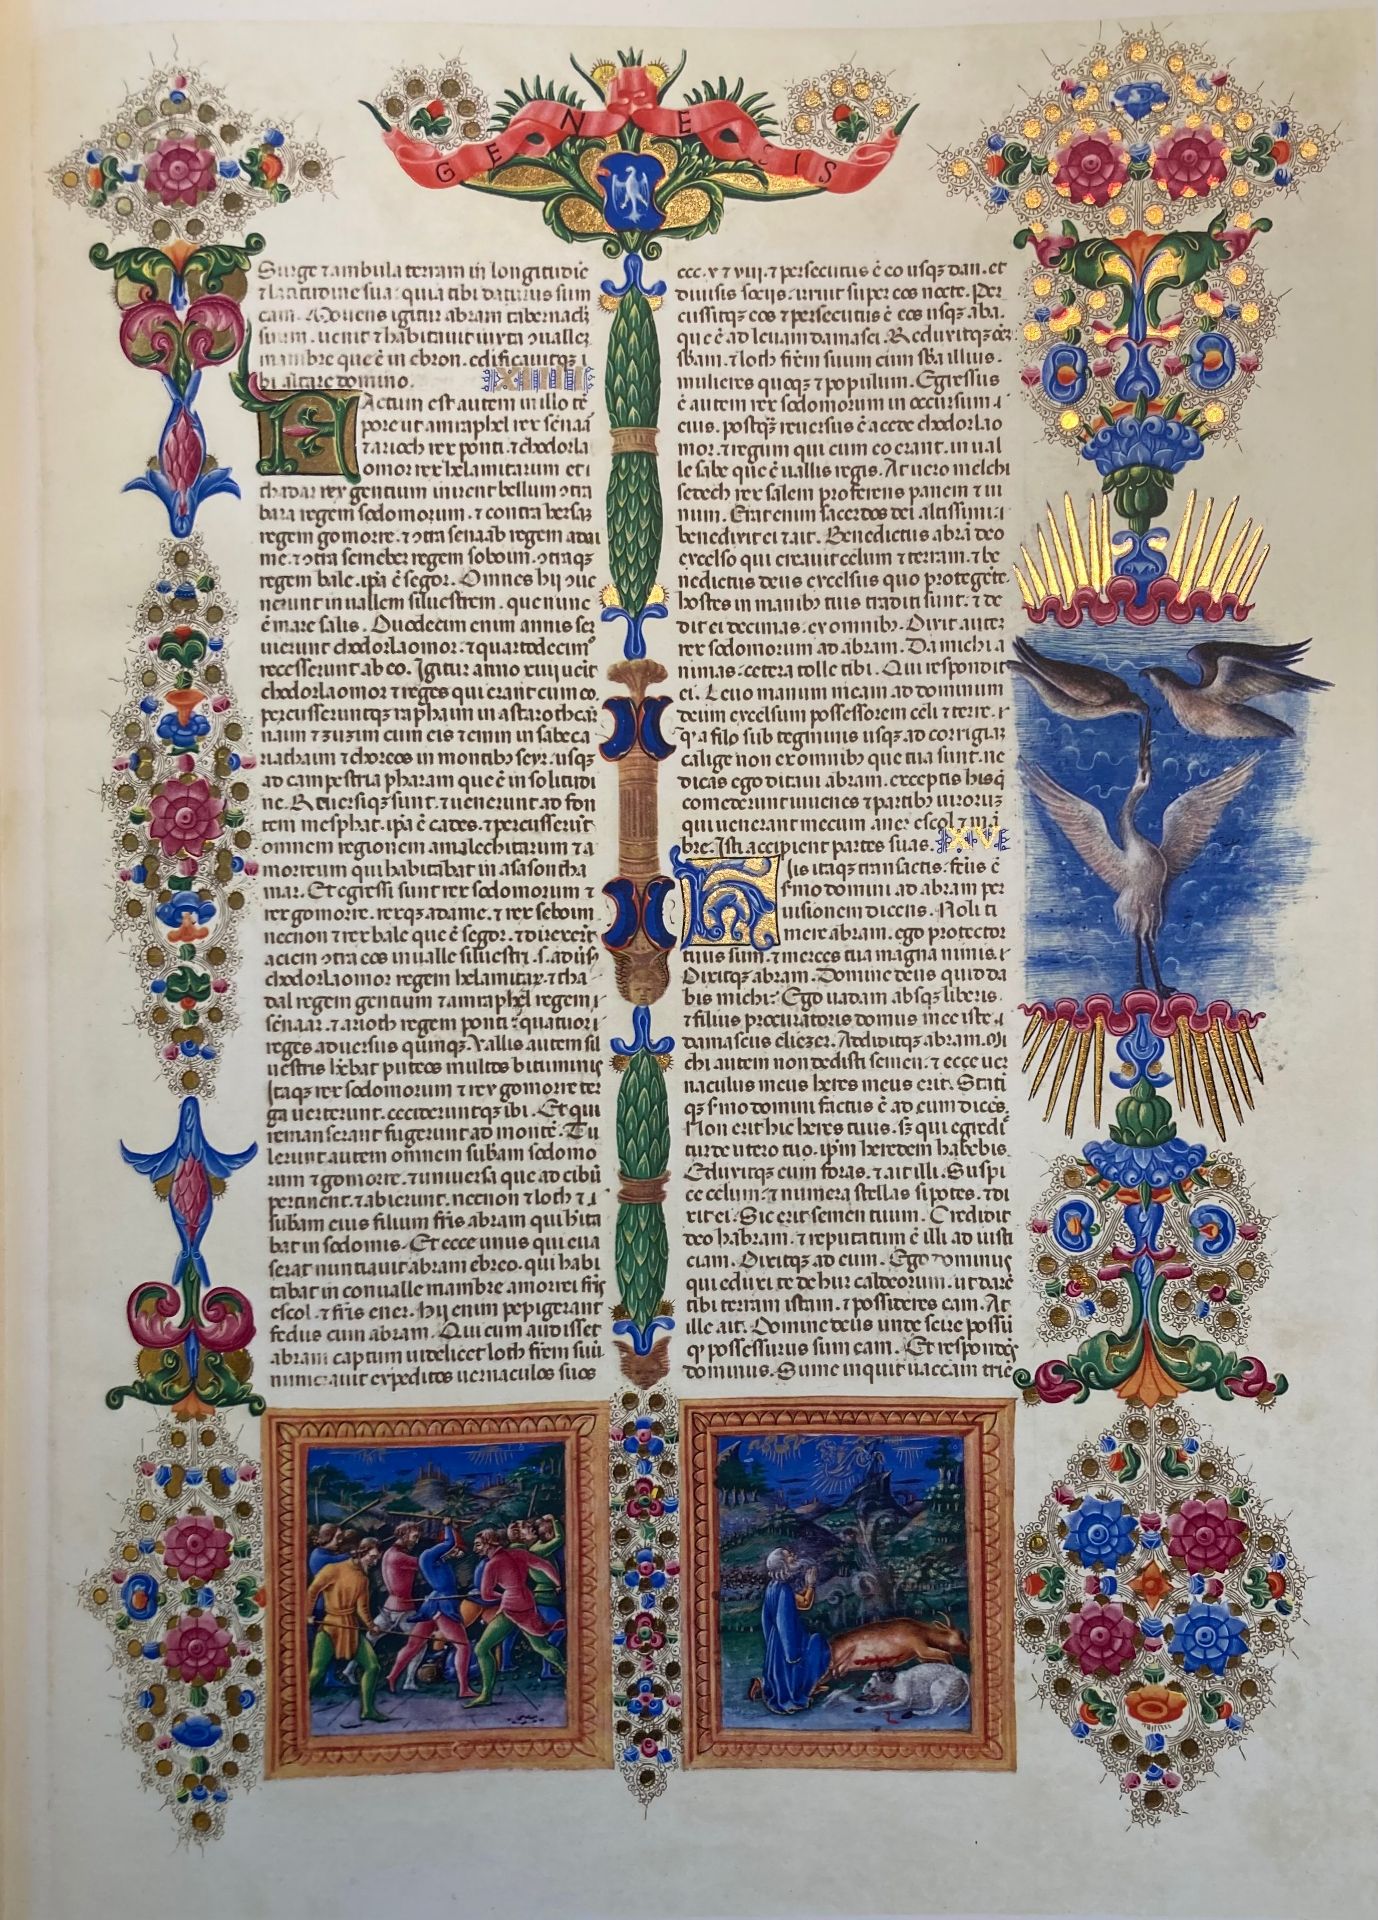 GENESIS
Surge ⁊ ambula terram in longitudiē
⁊ latitudine sua: quia tibi daturus sum
eam. Mouens igitur abram tabernacl̄
suum. uenit ⁊ habitauit iuxta ↄuallez
mambre que ē in ebron. edificauitqꝫ i
bi altare domino. XIIII
FActum est autem in illo tē
pore ut amraphel rex sēnaā
⁊ arioch rex ponti. ⁊ chodorla
omor rex helamitarum et
thadar rex gentium inirent bellum ↄtra
bara regem sodomorum. ⁊ contra bersaꝫ
regem gomorre. ⁊ ↄtra senaab regem adai
me. ⁊ ↄtra semeber regem soboim. ↄtraqꝫ
regem bale. ipā ē segor. Omnes hij ↄue
nerunt in uallem siluestrem. que nunc
ē mare salis. Duodecim enim annis ser
uierunt chodorlaomor. ⁊ quartodecimo
recesserunt ab eo. Igitur anno xiiii uēit
chodorlaomor ⁊ reges qui erant cum eo.
percusseruntqꝫ raphaim in astarothcar
naim ⁊ zuzim cum eis ⁊ emim in sabeca
riathaim ⁊ choreos in montibꝫ seyr. usqꝫ
ad campestria pharam que ē in solitudi
ne. Reuersiqꝫ sunt. ⁊ uenerunt ad fon
tem mesphat. ipā ē cades. ⁊ percusserūt
omnem regionem amalechitarum ⁊ a
morreum qui habitabat in asasontha
mar. Et egressi sunt rex sodomorum ⁊
rex gomorre. rexqꝫ adame. ⁊ rex seboim
necnon ⁊ rex bale que ē segor. ⁊ direxerūt
aciem ↄtra eos in ualle siluestri .s. adūsꝫ
chodorlaomor regem helamitaꝝ. ⁊ tha
dal regem gentium ⁊ amraphel regem
sēnaar. ⁊ arioth regem ponti: quatuor
reges aduersus quinqꝫ. Vallis autem sil
uestris hēbat puteos multos bituminis
Itaqꝫ rex sodomorum ⁊ rex gomorre ter
ga uerterunt. cecideruntqꝫ ibi. Et qui
remanserant fugerunt ad montē. Tu
lerunt autem omnem subam sodomo
rum ⁊ gomorre. ⁊ uniuersa que ad cibū
pertinent. ⁊ abierunt. necnon ⁊ loth ⁊
subam eius filium fris abram qui hita
bat in sodomis. Et ecce unus qui eua
serat nuntiauit abram ebreo. qui habi
tabat in conualle mambre amorrei fris
escol. ⁊ fris ener. hij enim pepigerant
fedus cum abram. Qui cum audisset
abram captum uidelicet loth frem suū
numerauit expeditos uernaculos suos
ccc. x ⁊ viii. ⁊ persecutus ē eos usqꝫ dan. et
diuisis sociis. irruit super eos nocte. Per
cussitqꝫ eos ⁊ persecutus ē eos usqꝫ oba.
que ē ad leuam damasci. Reduxitqꝫ oēz
sbam. ⁊ loth frem suum cum sba illius.
mulieres quoqꝫ ⁊ populum. Egressus
ē autem rex sodomorum in occursum
eius. postqꝫ reuersus ē a cede chodorlao
mor. ⁊ regum qui cum eo erant. in ual
le sabe que ē uallis regis. At uero melchi
sedech rex salem proferens panem ⁊ ui
num. Erat enim sacerdos dei altissimi:
benedixit ei ⁊ ait. Benedictus abrā deo
excelso qui creauit celum ⁊ terram. ⁊ be
nedictus deus excelsus quo protegēte.
hostes in manibꝫ tuis traditi sunt. ⁊ de
dit ei decimas. ex omnibꝫ. Dixit autez
rex sodomorum ad abram. Da michi a
nimas. cetera tolle tibi. Qui respondit
ei. Leuo manum meam ad dominum
deum excelsum possessorem celi ⁊ terre.
qꝫ a filo sub tegminis usqꝫ ad corrigiaꝫ
calige non ex omnibꝫ que tua sunt. ne
dicas ego ditaui abram. exceptis hisq̄
comederunt iuuenes ⁊ partibꝫ uirorum
qui uenerunt mecum. aner escol ⁊ mā
bre. Isti accipient partes suas. XV
HIis itaqꝫ transactis. fctūs ē
smo domini ad abram per
uisionem dicens. Noli ti
mere abram. ego protector
tuus sum. ⁊ merces tua magna nimis.
Dixitqꝫ abram. Domine deus quid da
bis michi? Ego uadam absqꝫ liberis.
⁊ filius procuratoris domus mee iste
damascus eliezer. Addiditqꝫ abram. Mi
chi autem non dedisti semen. ⁊ ecce uer
naculus meus heres meus erit. Stati
qꝫ smo domini factus ē ad eum dicēs.
Non erit hic heres tuus. sꝫ qui egredi
tur de utero tuo. ipm heredem habebis.
Eduxitqꝫ eum foras. ⁊ ait illi. Suspi
ce celum. ⁊ numera stellas si potes. ⁊ di
xit ei. Sic erit semen tuum. Credidit
deo habram. ⁊ reputatum ē illi ad iusti
ciam. Dixitqꝫ ad eum. Ego dominus
qui eduxi te de hur caldeorum. ut darē
tibi terram istam. ⁊ possideres eam. At
ille ait. Domine deus unde scire possū
ꝙ possessurus sum eam. Et respondēs
dominus. Sume inquit uaccam triē